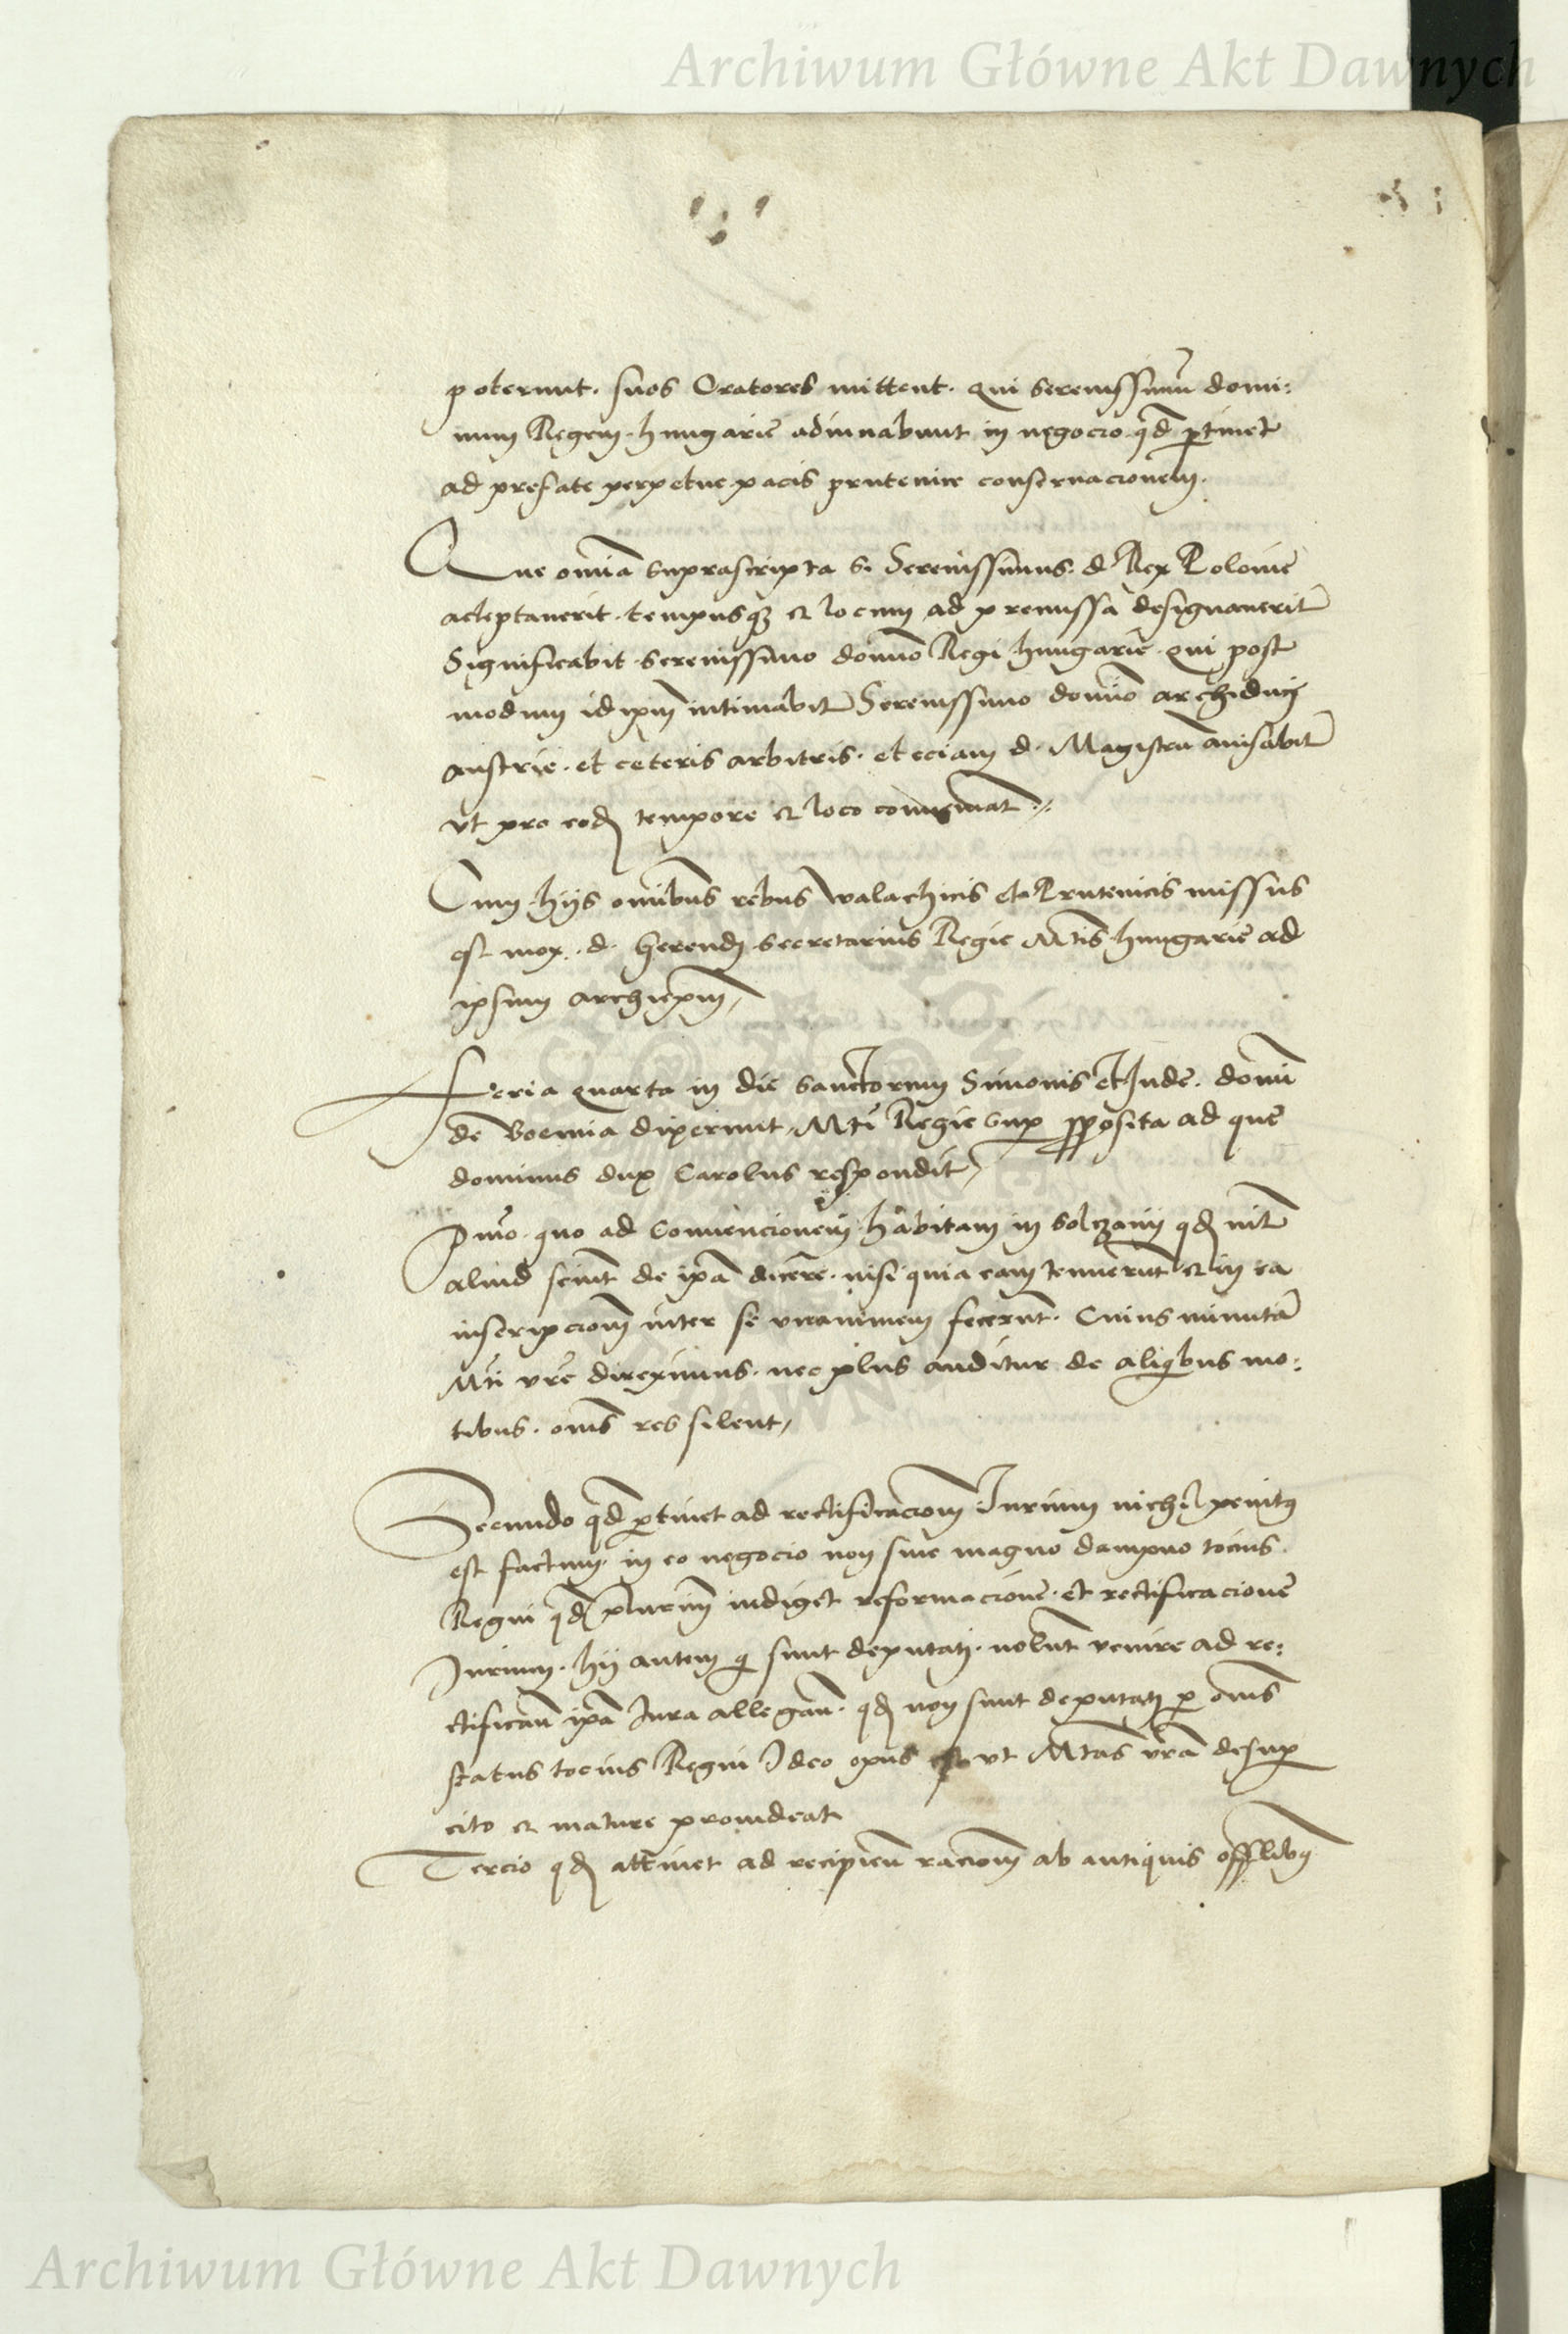 Archiwum Główne Akt Dawnych
poterunt. suos Oratores mittent. qui serenissimū domi:
num Regem hungarie adiuuabunt in negocio qd ptinet
ad prefate perpetue pacis prutenice conseruacionem.
Que omīa suprascripta si Serenissimus d Rex Polonie
acceptauerit. tempusq et locum ad premissa designauerit
Significabit serenissimo domīo Regi hungarie qui post
modum id ipm intimabit Serenissimo domīo archiducj
austrie. et ceteris arbitris. et eciam d. Magistrū auisabit
vt pro eodj tempore et loco conueniat
Cum hijs omībus rebus walachicis et Prutenicis missus
est mox d. Serendj secretarius Regie Mtis hungarie ad
ipsum archiepm
Feria quarta in die sanctorum Simonis et Jude. domī
de Boemia dixerunt Mti Regie sup pposita ad que
dominus dux Carolus respondit
Pmo. quo ad conuencionem habitam in Solczanij qd nil
aliud sciunt de ipa dicere. nisi quia eam tenuerunt et in ea
inscripciom inter se vnanimem fecerunt. Cuius minutā
Mti vre direximus. nec plus auditur de aliqbus mo:
tibus. oms res silent
Secundo qd ptinet ad rectificaciom Jurium nichil penitus
est factum in eo negocio non sine magno dampno tocius
Regni qd plurimū indiget reformacione et rectificacione
Jurium. hij autem q sunt deputatj. nolunt venire ad re:
ctificanū ipa Jura allegan. qd non sunt deputatj p oms
status tocius Regni Ideo opus est vt Mtas vra desup
cito et mature prouideat
Tercio qd attinet ad recipienū raciom ab antiquis offlibus
Archiwum Główne Akt Dawnych